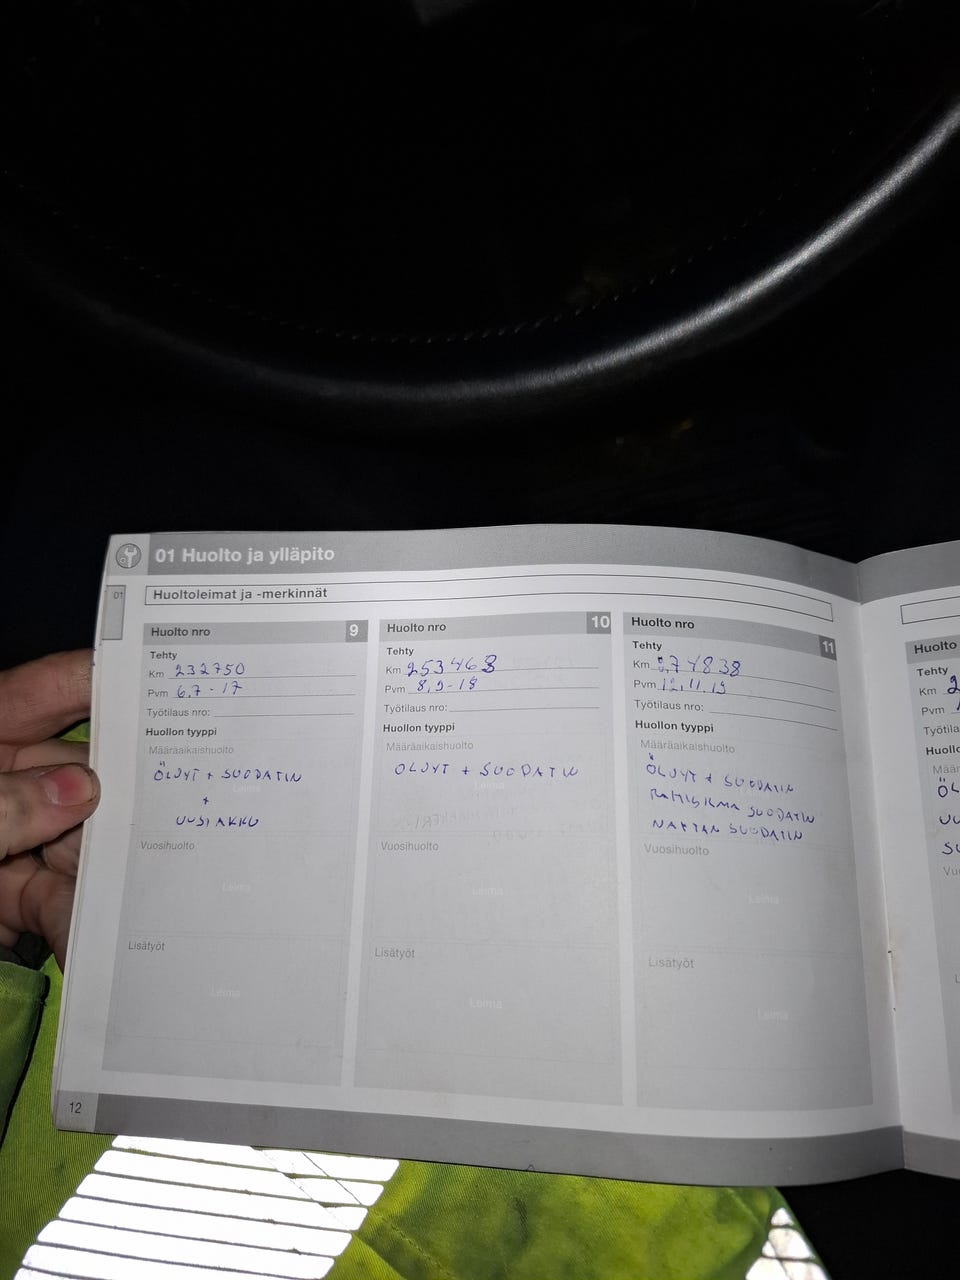 01 Huolto ja ylläpito
01
Huoltoleimat ja -merkinnät
Huolto nro 9
Tehty
Km 232750
Pvm 6.7-17
Työtilaus nro:
Huollon tyyppi
Määräaikaishuolto
ÖLJYT + SUODATIN
Leima
+
UUSI AKKU
Vuosihuolto
Leima
Lisätyöt
Leima
Huolto nro 10
Tehty
Km 253463
Pvm 8.9-18
Työtilaus nro:
Huollon tyyppi
Määräaikaishuolto
ÖLJYT + SUODATIN
Leima
Vuosihuolto
Leima
Lisätyöt
Leima
Huolto nro 11
Tehty
Km 274838
Pvm 12.11.19
Työtilaus nro:
Huollon tyyppi
Määräaikaishuolto
ÖLJYT + SUODATIN
SUODATIN
SUODATIN
Vuosihuolto
Leima
Lisätyöt
Leima
12
Huolto
Tehty
Km 2
Pvm